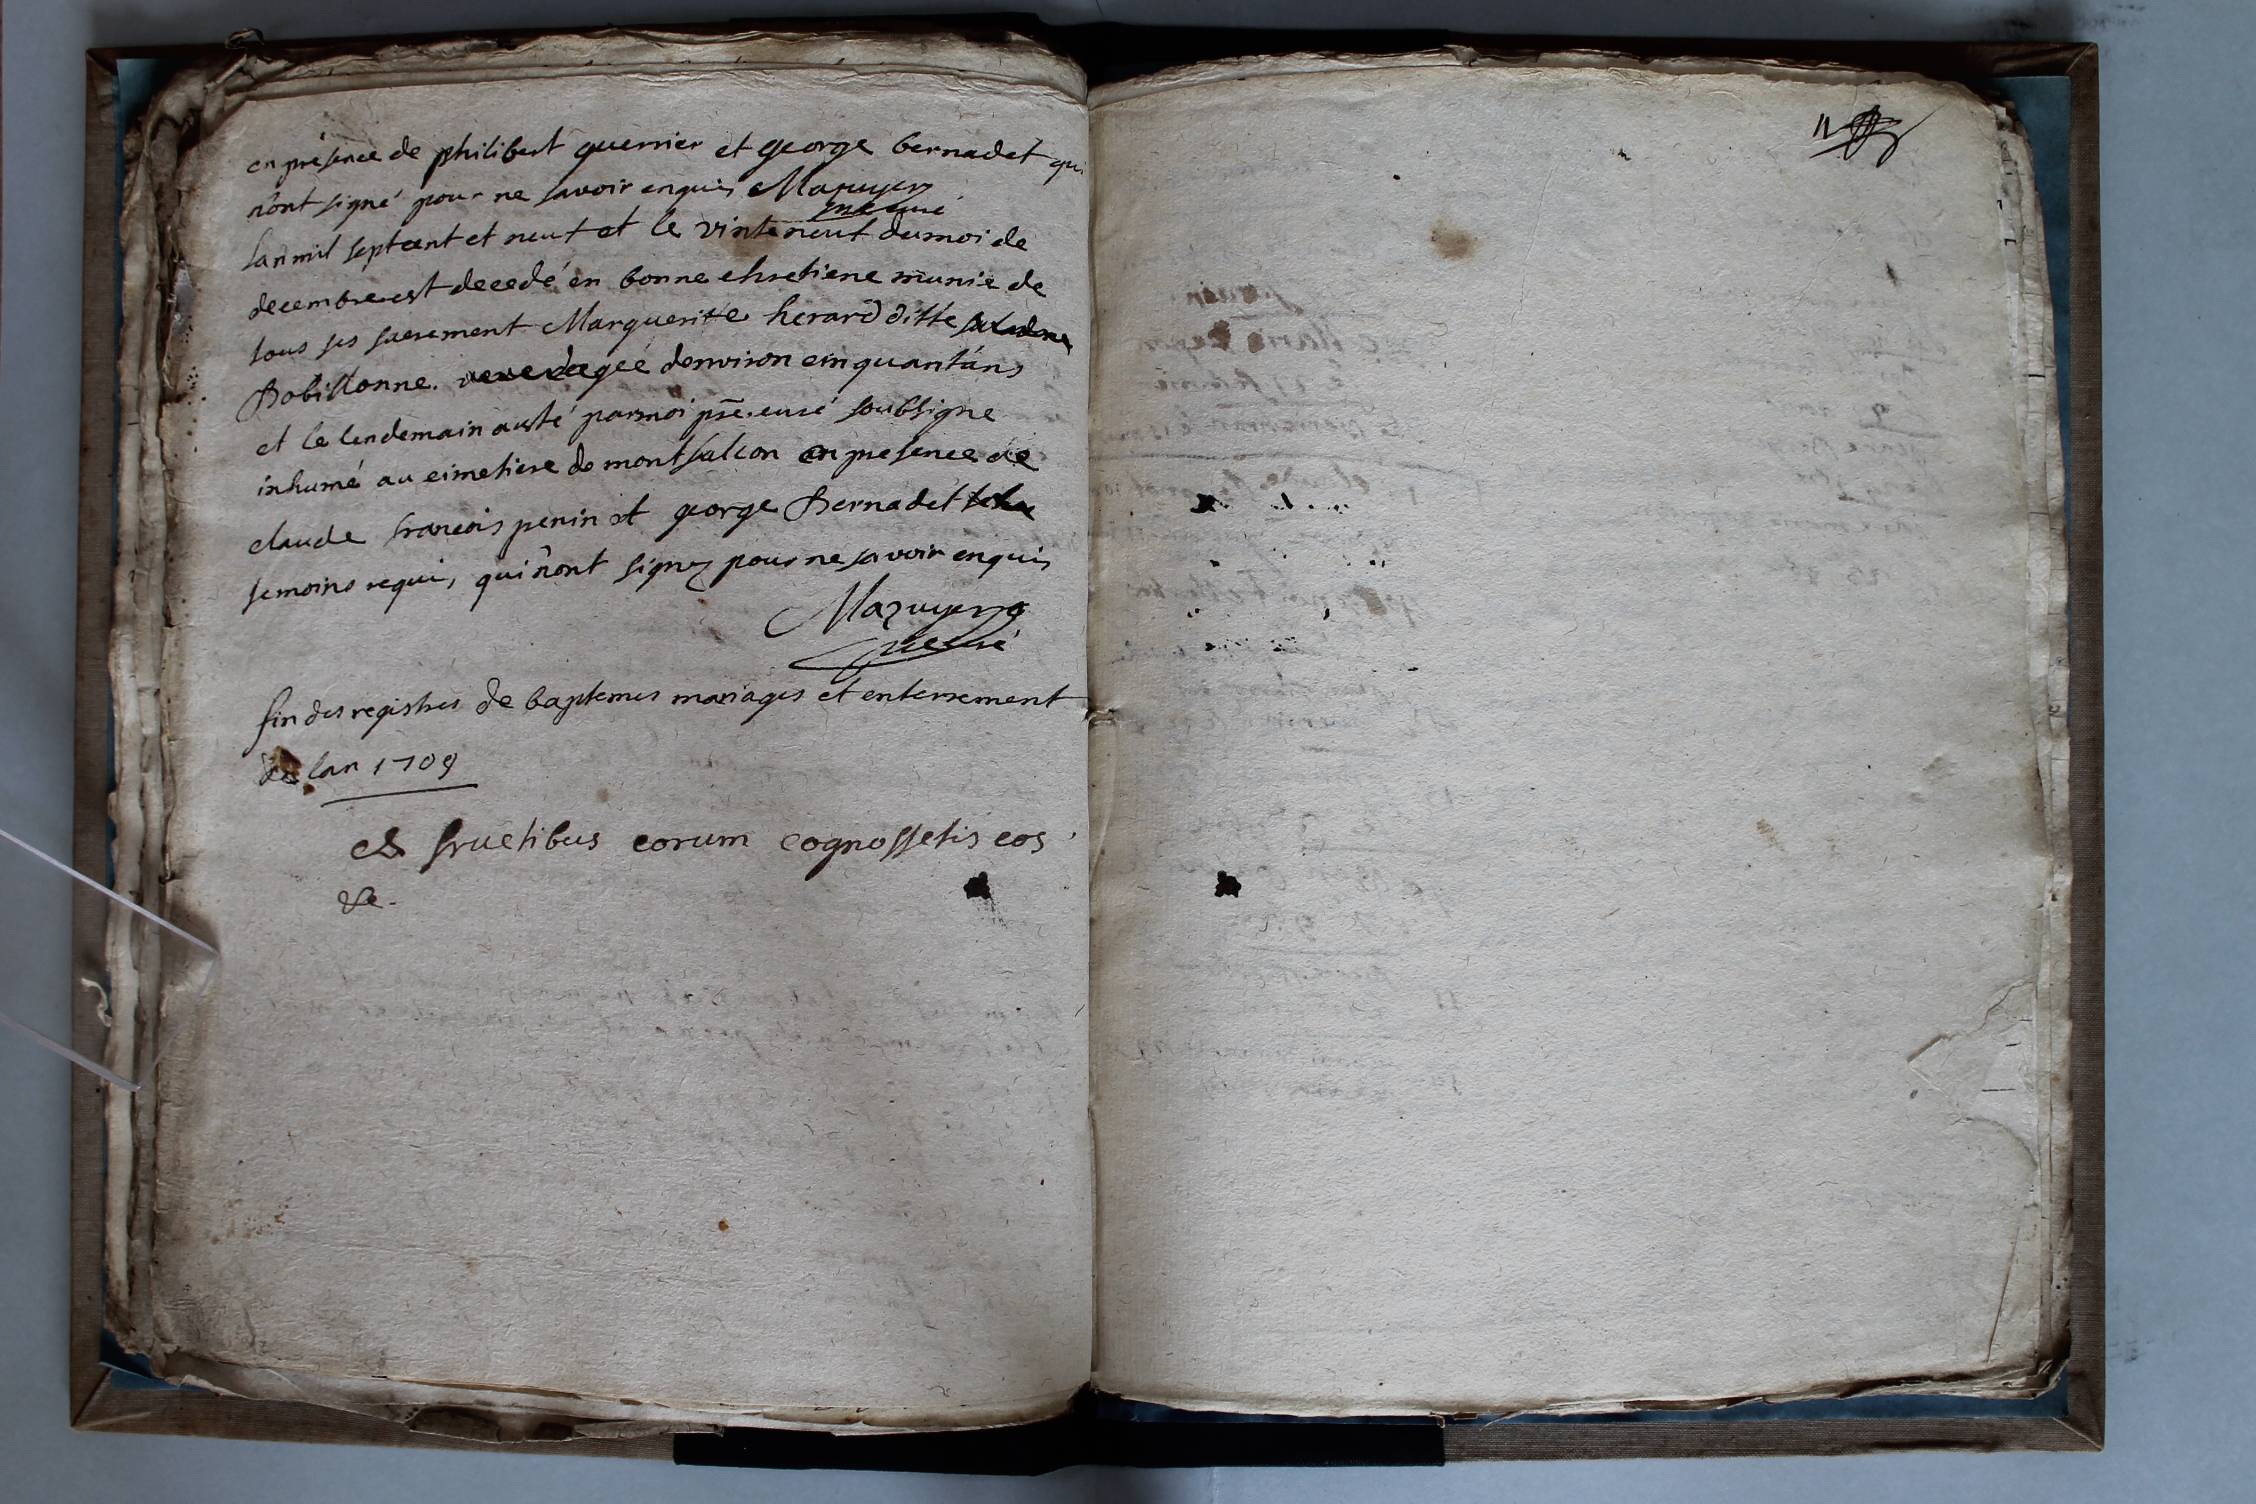 en présence de philibert guerrier et george bernadet qui
n'ont signé pour ne savoir enquis Mazuyer
prê curé
Lan mil septcent et neuf et le vinteneuf dumoi de
decembre est decedé en bonne chretiene munie de
tous ses sacrement Margueritte herard ditte
Bobillonne. agée denviron cinquantáns
et le lendemain aesté parmoi prē. curé soubsigne
inhumé au cimetiere de montfalcon en presence de
claude francois penin et george Bernadet
temoins requis, qui n'ont signez pour ne savoir enquis
Mazuyer
prê curé
fin des registres de baptemes mariages et enterrement
de lan 1709
ex fructibus eorum cognossetis eos
&c.
11